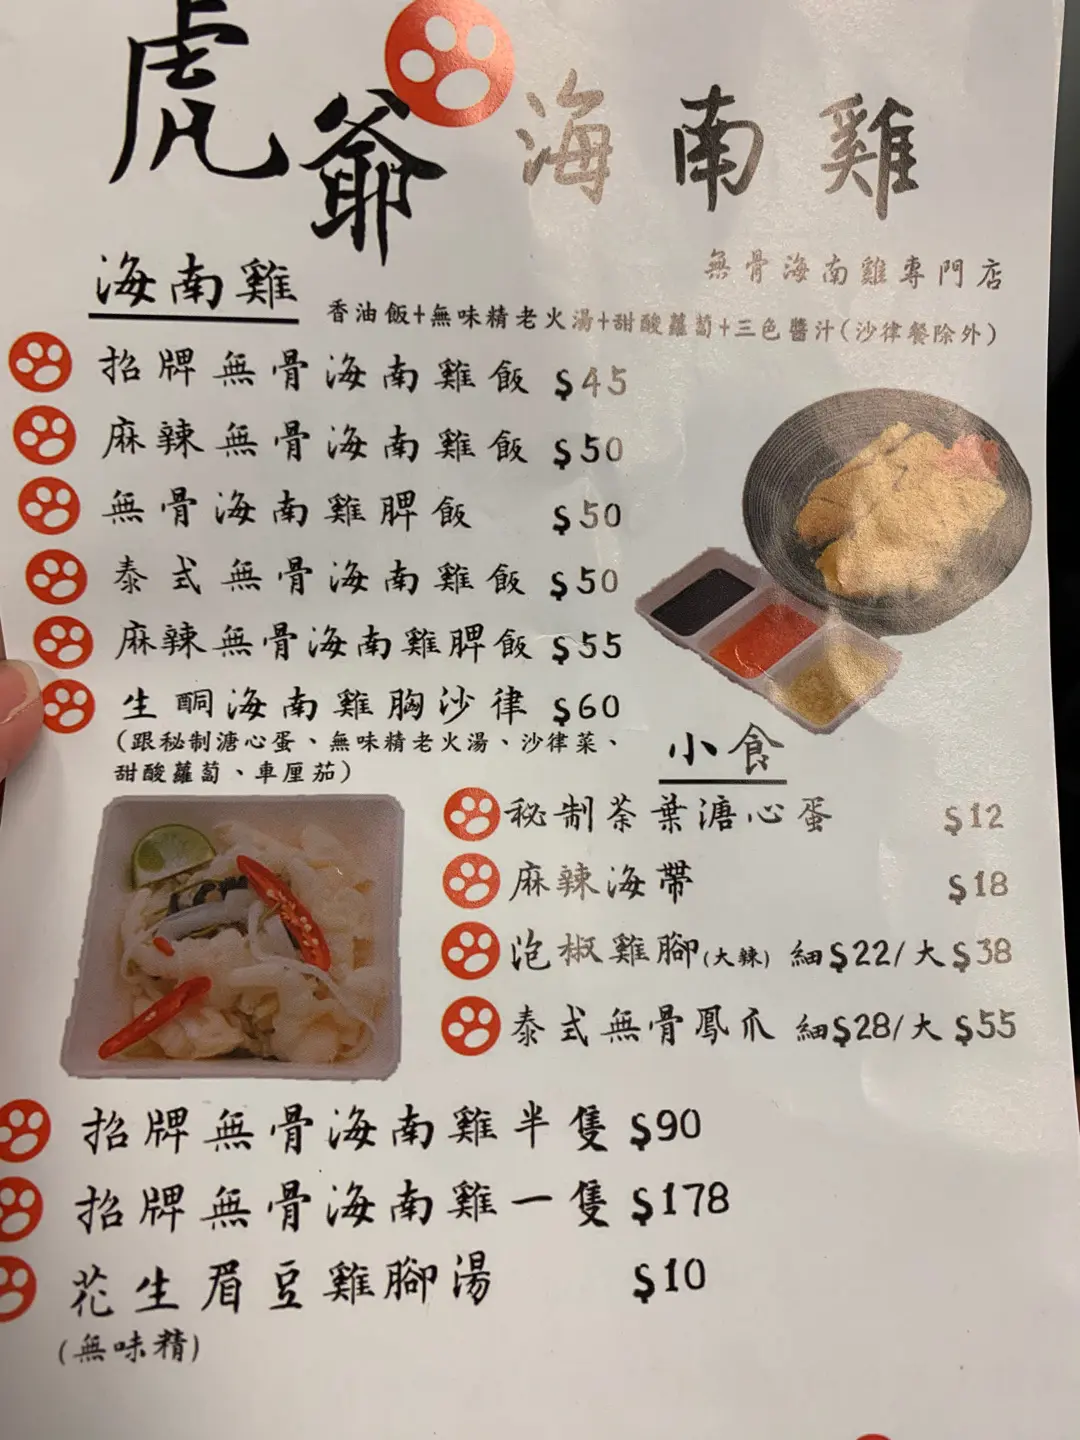 虎爺海南雞
無骨海南雞專門店
海南雞
香油飯+無味精老火湯+甜酸蘿蔔+三色醬汁(沙律餐除外)
招牌無骨海南雞飯 $45
麻辣無骨海南雞飯 $50
無骨海南雞髀飯 $50
泰式無骨海南雞飯 $50
麻辣無骨海南雞髀飯 $55
生酮海南雞胸沙律 $60
(跟秘制溏心蛋、無味精老火湯、沙律菜、
甜酸蘿蔔、車厘茄)
小食
秘制茶葉溏心蛋 $12
麻辣海帶 $18
泡椒雞腳(大辣) 細$22/大$38
泰式無骨鳳爪 細$28/大$55
招牌無骨海南雞半隻 $90
招牌無骨海南雞一隻 $178
花生眉豆雞腳湯 $10
(無味精)